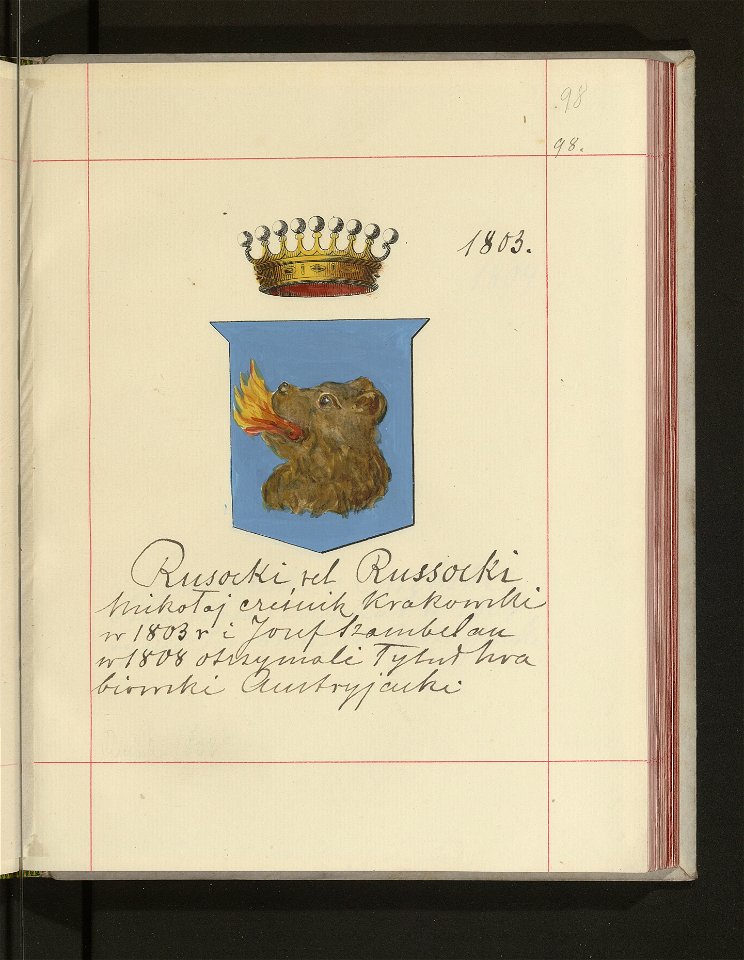 98
98.
1803.
Rusocki vel Russocki
Mikołaj cześnik Krakowski
w 1803 r i Josef Szambelan
w 1808 otrzymali Tytuł hra
biowski Austryjacki